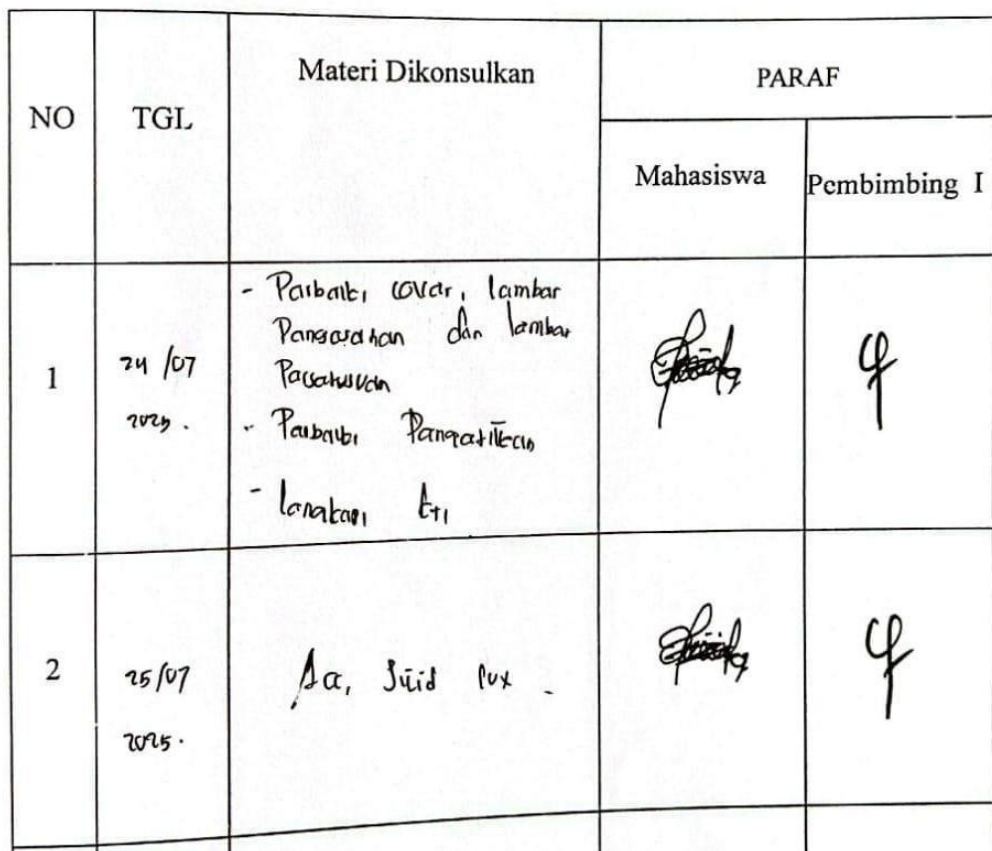 NO
TGL
Materi Dikonsulkan
PARAF
Mahasiswa
Pembimbing I
1
24 /07
2025.
- Perbaiki cover, lembar
Pengesahan dan lembar
Persetujuan
- Perbaiki Pengetikan
- lengkapi
2
25/07
2025.
Acc,